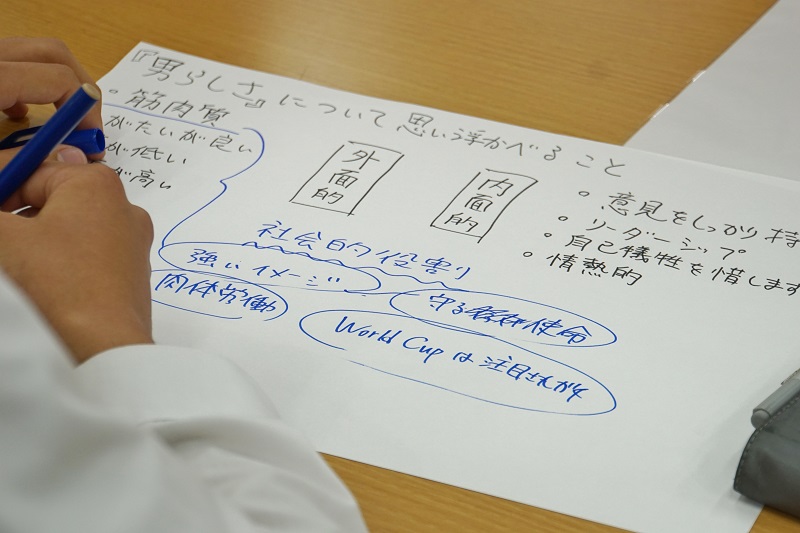 『男らしさ』について思い浮かべること
・筋肉質
がたいが良い
が低い
が高い
外面的
内面的
・意見をしっかり持
・リーダーシップ
・自己犠牲を惜します
・情熱的
社会的役割り
強いイメージ
肉体労働
守る 使命
World Cup は注目されがち